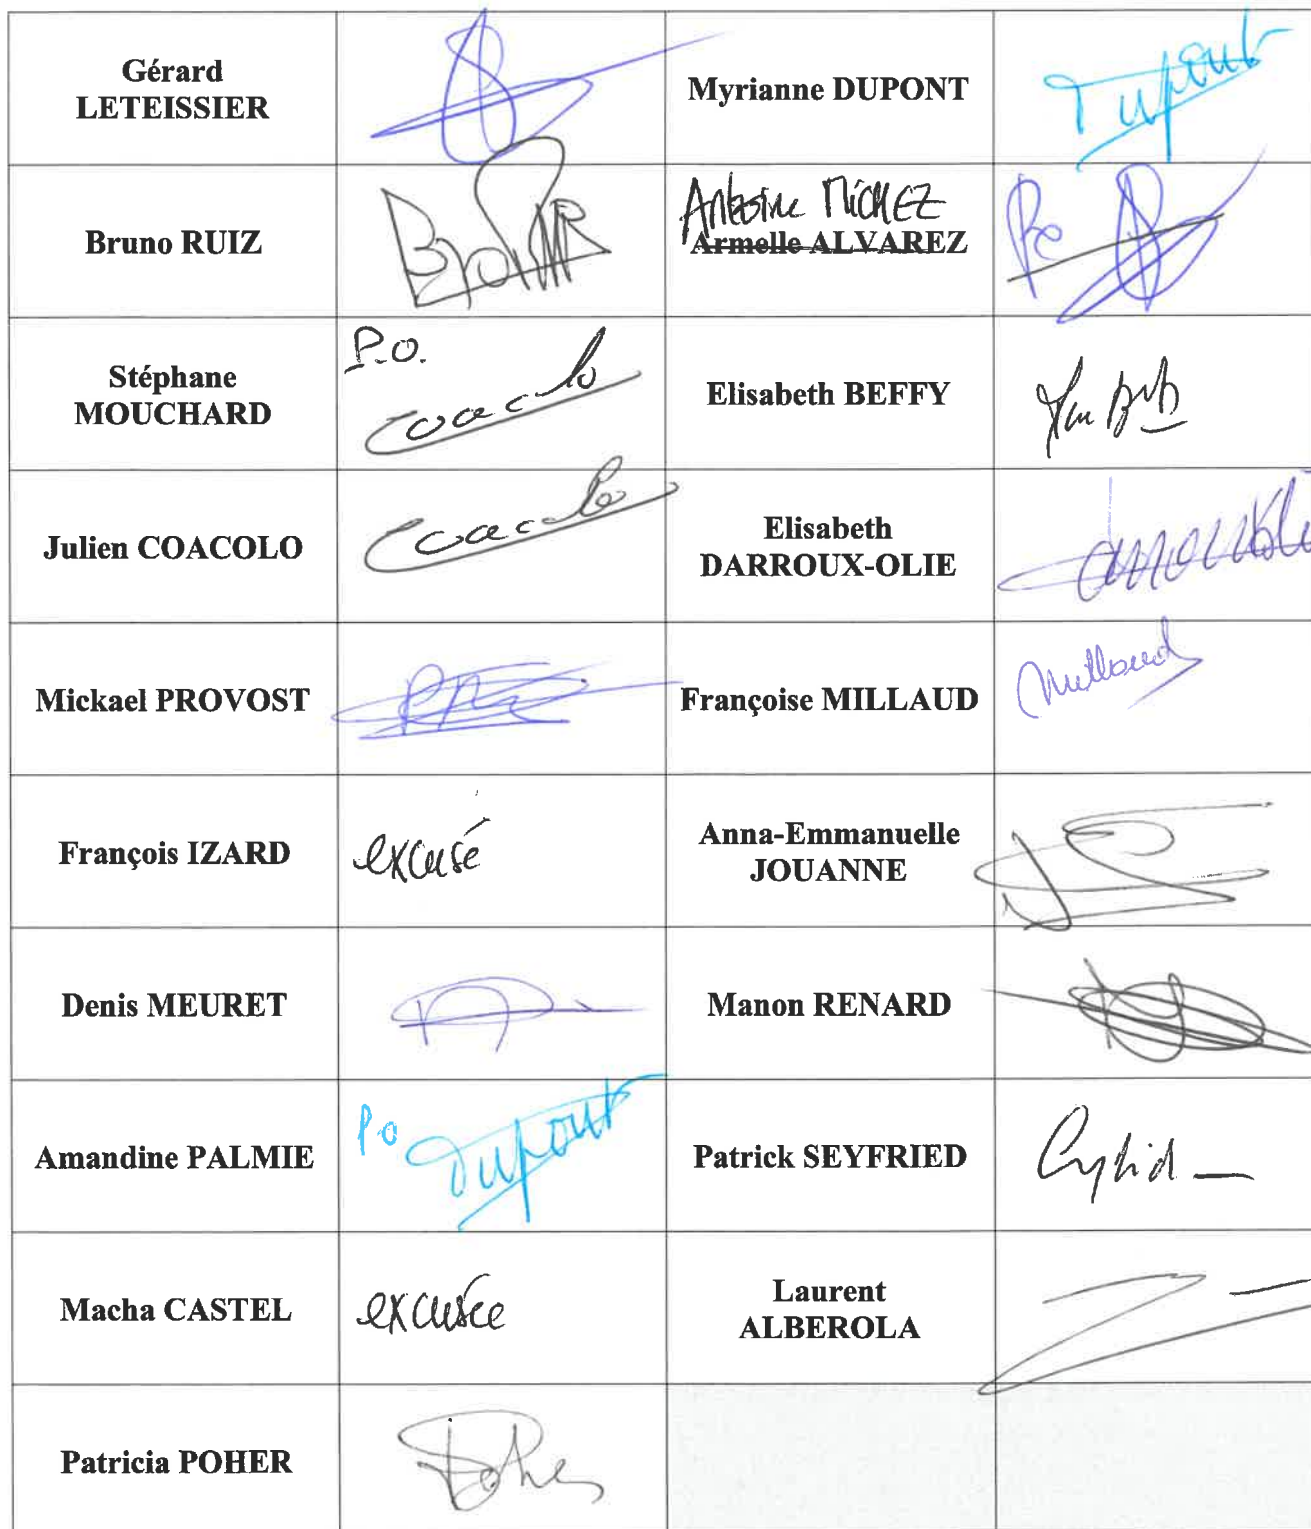 Gérard
LETEISSIER
Myrianne DUPONT
Dupont
Bruno RUIZ
Antoine MICHEZ
Armelle ALVAREZ
Po
Stéphane
MOUCHARD
P.O.
Coacolo
Elisabeth BEFFY
Julien COACOLO
Coacolo
Elisabeth
DARROUX-OLIE
Mickael PROVOST
Françoise MILLAUD
Millaud
François IZARD
excusé
Anna-Emmanuelle
JOUANNE
Denis MEURET
Manon RENARD
Amandine PALMIE
P.o
Dupont
Patrick SEYFRIED
Macha CASTEL
excusée
Laurent
ALBEROLA
Patricia POHER
Poher